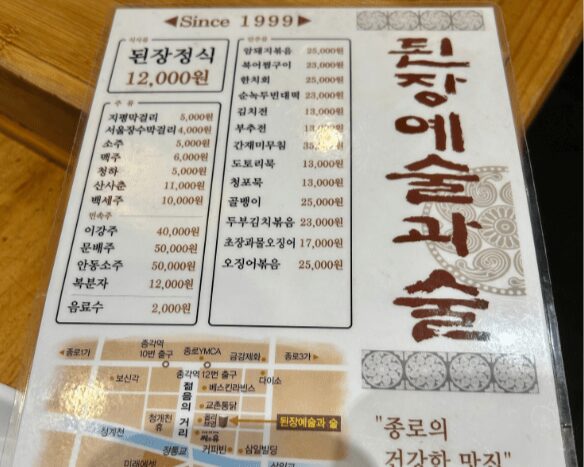 ◀Since 1999▶
식사류
된장정식
12,000원
주 류
지평막걸리 5,000원
서울장수막걸리 4,000원
소주 5,000원
맥주 6,000원
청하 5,000원
산사춘 11,000원
백세주 10,000원
민속주
이강주 40,000원
문배주 50,000원
안동소주 50,000원
복분자 12,000원
음료수 2,000원
안주류
암돼지볶음 25,000원
북어찜구이 23,000원
한치회 25,000원
순녹두빈대떡 23,000원
김치전 13,000원
부추전 13,000원
간재미무침 35,000원
도토리묵 13,000원
청포묵 13,000원
골뱅이 25,000원
두부김치볶음 23,000원
초장과물오징어 17,000원
오징어볶음 25,000원
된장예술과 술
"종로의
건강한 맛집"
종각역
10번 출구
종로YMCA
금강제화
◀종로1가
종로3가▶
종각역 12번 출구
보신각
베스킨라빈스
다이소
젊음의 거리
교촌통닭
된장예술과 술
청계천
휴
커피빈
삼일빌딩
청계천
장통교
미래에셋
삼일교